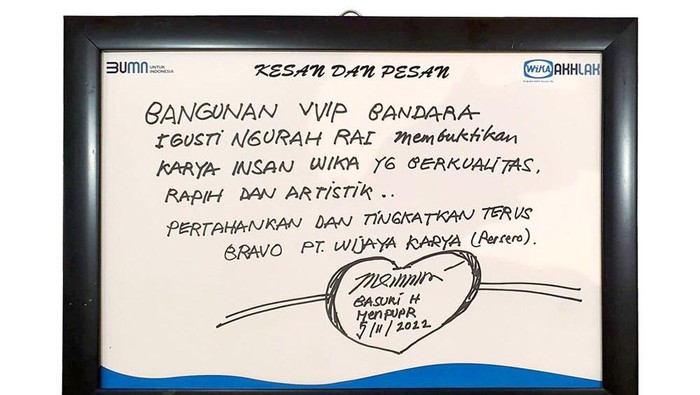 BUMN UNTUK INDONESIA
KESAN DAN PESAN
WIKA AKHLAK
BANGUNAN VVIP BANDARA
I GUSTI NGURAH RAI membuktikan
KARYA INSAN WIKA YG BERKUALITAS,
RAPIH DAN ARTISTIK..
PERTAHANKAN DAN TINGKATKAN TERUS
BRAVO PT. WIJAYA KARYA (Persero).
BASUKI H
MENPUPR
5/11/2022